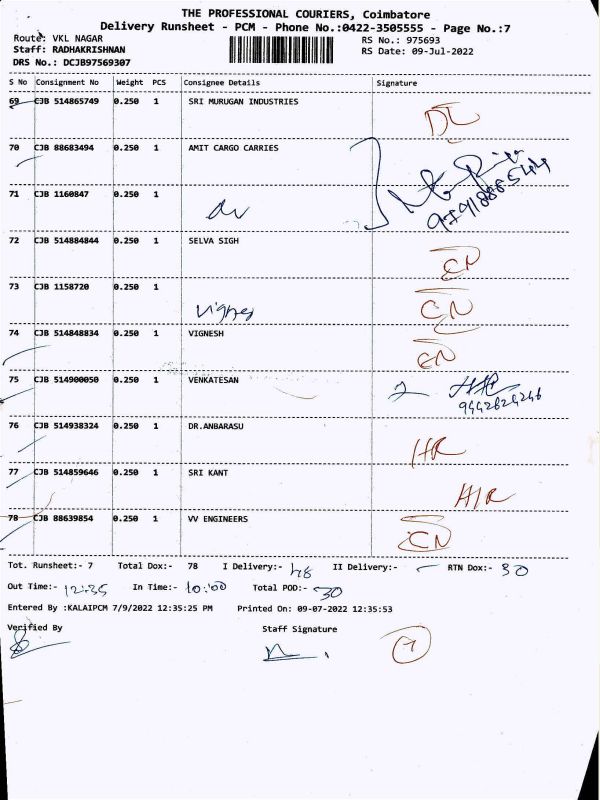 THE PROFESSIONAL COURIERS, Coimbatore
Delivery Runsheet - PCM - Phone No.:0422-3505555 - Page No.:7
Route: VKL NAGAR RS No.: 975693
Staff: RADHAKRISHNAN RS Date: 09-Jul-2022
DRS No.: DCJB97569307
S No Consignment No Weight PCS Consignee Details Signature
69 CJB 514865749 0.250 1 SRI MURUGAN INDUSTRIES
DL
70 CJB 88683494 0.250 1 AMIT CARGO CARRIES
71 CJB 1160847 0.250 1
72 CJB 514884844 0.250 1 SELVA SIGH
CN
73 CJB 1158720 0.250 1
Vignes CN
74 CJB 514848834 0.250 1 VIGNESH
CN
75 CJB 514900050 0.250 1 VENKATESAN
76 CJB 514938324 0.250 1 DR.ANBARASU
HR
77 CJB 514859646 0.250 1 SRI KANT
78 CJB 88639854 0.250 1 VV ENGINEERS
CN
Tot. Runsheet:- 7 Total Dox:- 78 I Delivery:- 48 II Delivery:- - RTN Dox:- 30
Out Time:- 12:35 In Time:- 10:00 Total POD:- 30
Entered By :KALAIPCM 7/9/2022 12:35:25 PM Printed On: 09-07-2022 12:35:53
Verified By Staff Signature
7